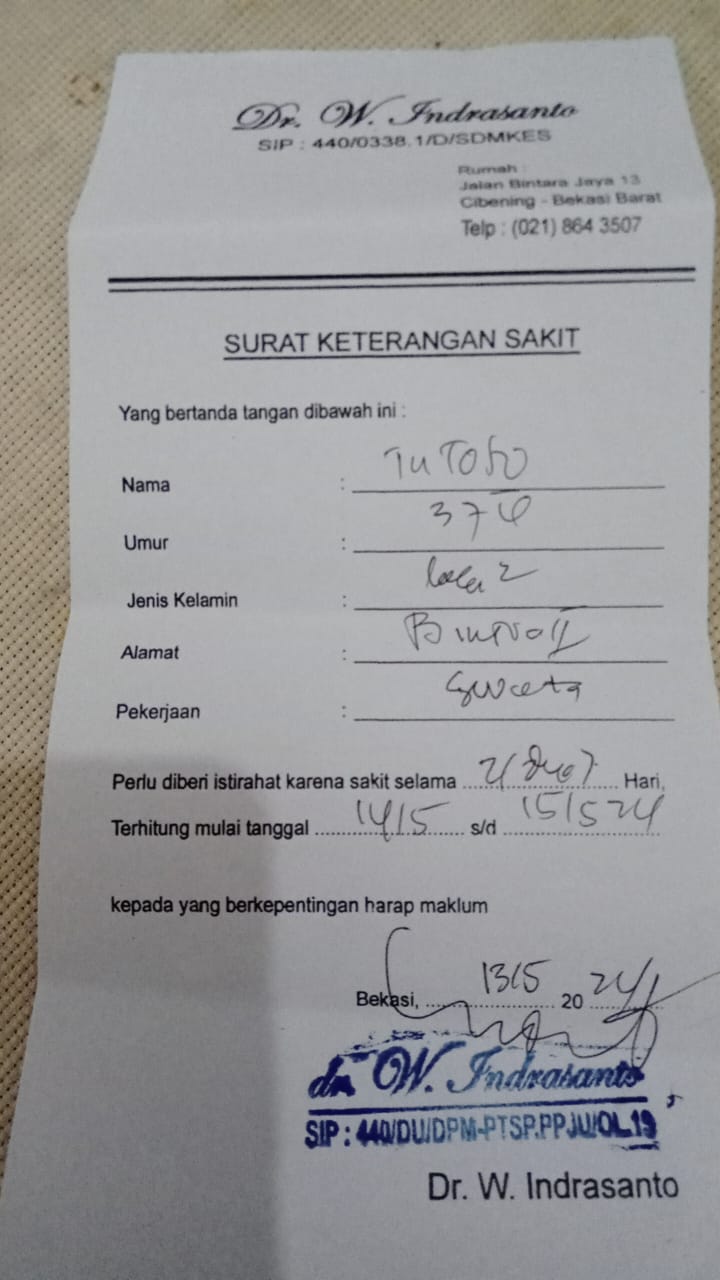 Dr. W. Indrasanto
SIP : 440/0338.1/D/SDMKES
Rumah :
Jalan Bintara Jaya 13
Cibening - Bekasi Barat
Telp : (021) 864 3507
SURAT KETERANGAN SAKIT
Yang bertanda tangan dibawah ini :
Nama :
Umur : 37
Jenis Kelamin :
Alamat :
Pekerjaan : Swasta
Perlu diberi istirahat karena sakit selama 2 (dua) Hari,
Terhitung mulai tanggal 14/5 s/d 15/5 24
kepada yang berkepentingan harap maklum
Bekasi, 13/5 20 24
dr. W. Indrasanto
SIP : 440/DU/DPM-PTSP.PPJU/OL.19
Dr. W. Indrasanto